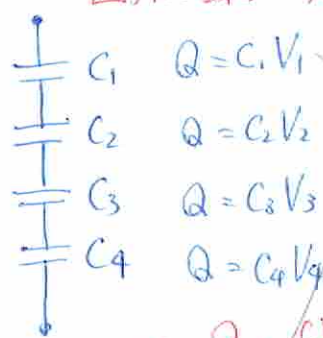 C₁ Q = C₁V₁
C₂ Q = C₂V₂
C₃ Q = C₃V₃
C₄ Q = C₄V₄